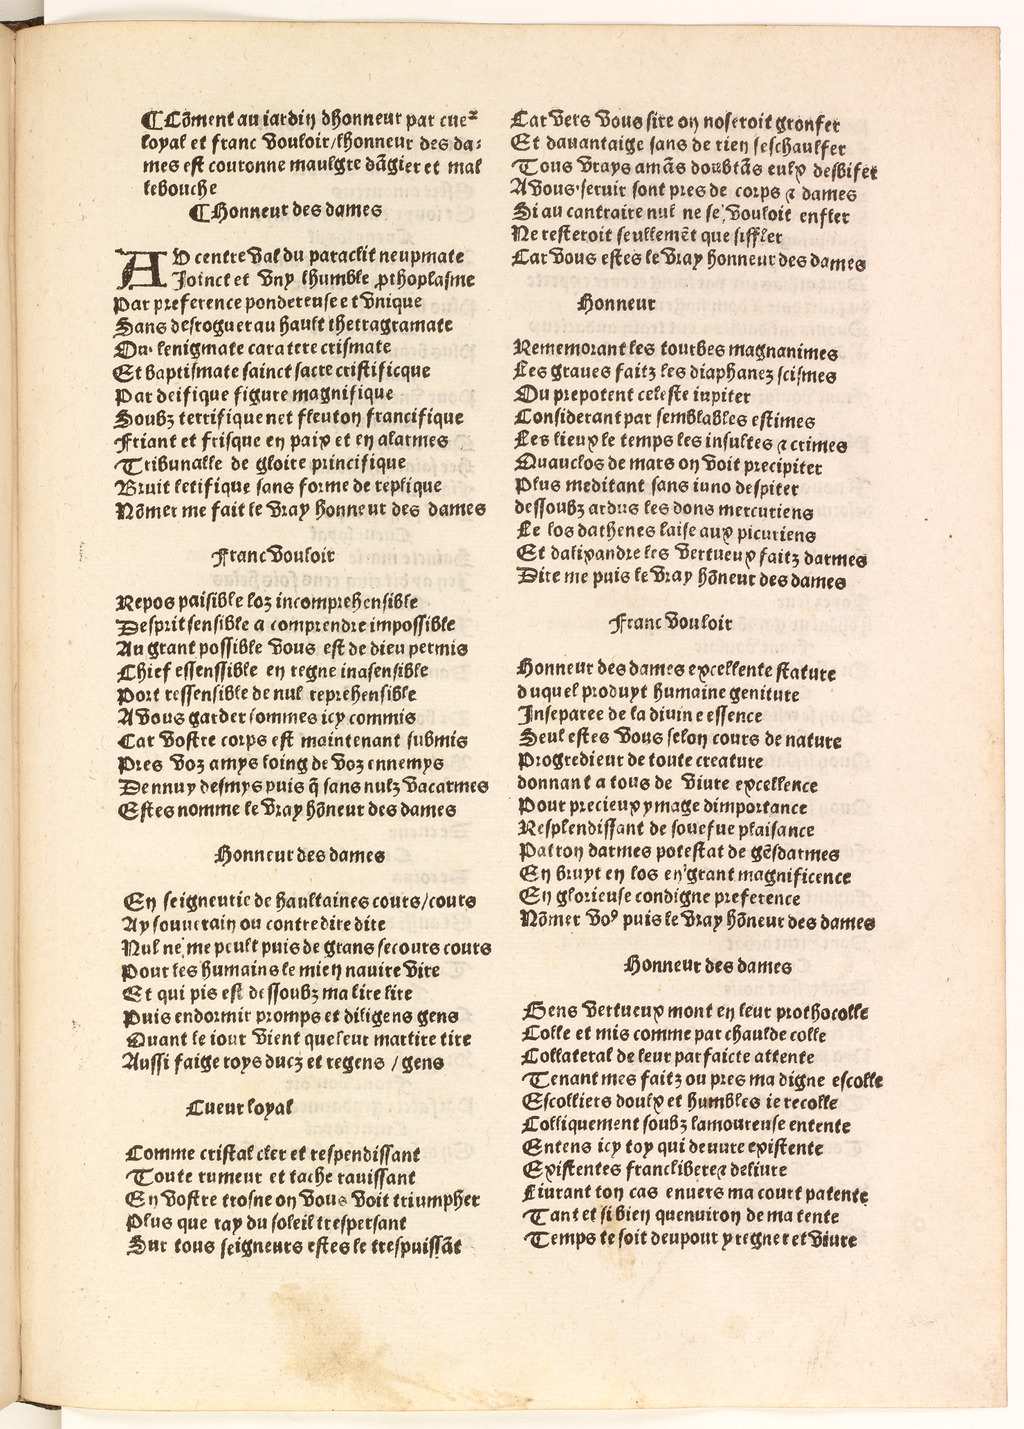 ¶Cõment au iardin dhonneur par cueꝛ
loyal et franc vouloir/lhonneur des da-
mes est couronne maulgre dãgier et mal
lebouche
¶Honneur des dames
AU centre val du paraclit neupmate
Joinct et vny lhumble ꝓthoplasme
Par preference pondereuse et vnique
Sans desroguer au hault thetragramate
Ou lenigmate caratere crismate
Et baptismate sainct sacre cristificque
Par deifique figure magnifique
Soubz terrifique net fleuron francifique
Friant et frisque en paix et en alarmes
Tribunalle de gloire principique
Bruit letifique sans forme de replique
Nõmer me fait le vray honneur des dames
Franc vouloir
Repos paisible loz incomprehensible
Desprit sensible a comprendre impossible
Au grant possible vous est de dieu permis
Chief essenssible en regne inasensible
Port ressensible de nul reprehensible
A vous garder sommes icy commis
Car vostre corps est maintenant submis
Pres voz amys loing de voz ennemys
Dennuy desmys puis q̃ sans nulz vacarmes
Estes nomme le vray hõneur des dames
Honneur des dames
En seigneurie de haultaines cours/cours
Ay souuerain ou contredire dite
Nul ne me peult puis de grans secours cours
Pour les humains le mien nauire vire
Et qui pis est dessoubz ma lire lire
Puis endormir promps et diligens gens
Quant le iour vient que leur martire tire
Aussi faige roys ducz et regens / gens
Cueur loyal
Comme cristal cler et respendissant
Toute rumeur et tache rauissant
En vostre trosne on vous voit triumpher
Plus que ray du soleil trespersant
Sur tous seigneurs estes le trespuissãt
Car vers vous sire on noseroit gronfer
Et dauantaige sans de rien seschaulfer
Tous vrays amãs doubtãs eulx desbifer
A vous seruir sont pres de corps ⁊ dames
Si au cantraire nul ne se vouloit enfler
Ne resteroit seullemẽt que siffler
Car vous estes le vray honneur des dames
Honneur
Rememorant les tourbes magnanimes
Les graues faitz les diaphanez scismes
Du prepotent celeste iupiter
Considerant par semblables estimes
Les lieux le temps les insultes ⁊ crimes
Quauclos de mars on voit precipiter
Plus meditant sans iuno despiter
dessoubz ardus les dons mercuriens
Le los dathenes laise aux picuriens
Et dalixandre les vertueux faitz darmes
Dire me puis le vray hõneur des dames
Franc vouloir
Honneur des dames excellente stature
duquel produyt humaine geniture
Inseparee de la diuine essence
Seul estes vous selon cours de nature
Progredieur de toute creature
donnant a tous de viure excellence
Pour precieux ymage dimportance
Resplendissant de souefue plaisance
Patron darmes potestat de gẽsdarmes
En bruyt en los en grant magnificence
En glorieuse condigne preference
Nõmer voꝰ puis le vray hõneur des dames
Honneur des dames
Gens vertueux mont en leur prothocolle
Colle et mis comme par chaulde colle
Collateral de leur parfaicte attente
Tenant mes faitz ou pres ma digne escolle
Escolliers doulx et humbles ie recolle
Colliquement soubz lamoureuse entente
Entens icy toy qui deuure existente
Existentes franc libere ⁊ deliure
Liurant ton cas enuers ma court patente
Tant et si bien quenuiron de ma tente
Temps te soit deu pour y regner et viure